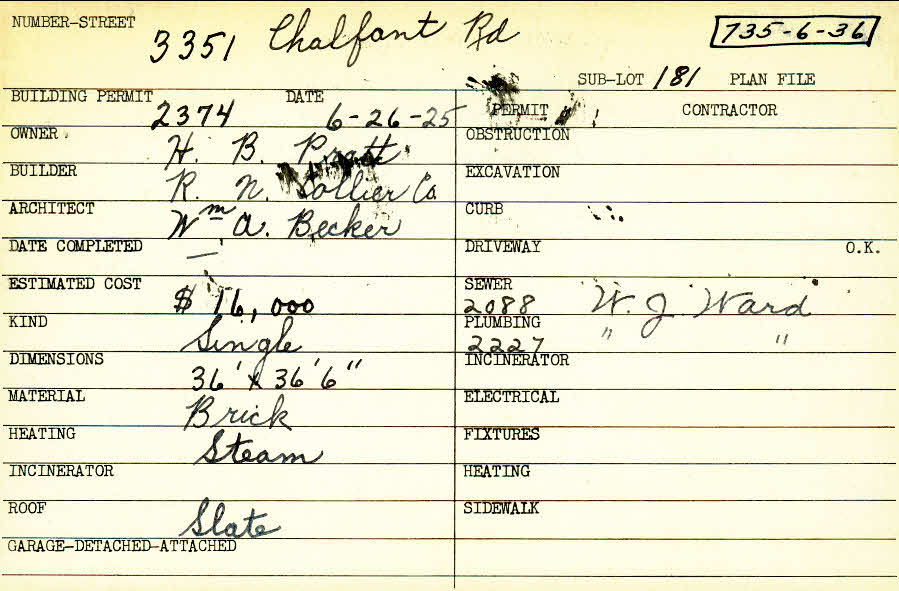 NUMBER-STREET 3351 Chalfant Rd 735-6-36
SUB-LOT 181 PLAN FILE
BUILDING PERMIT 2374 DATE 6-26-25 PERMIT CONTRACTOR
OWNER H. B. Pratt OBSTRUCTION
BUILDER R. N. Collier Co. EXCAVATION
ARCHITECT Wm A. Becker CURB
DATE COMPLETED — DRIVEWAY O.K.
ESTIMATED COST $ 16,000 SEWER 2088 W. J. Ward
KIND Single PLUMBING 2227 " "
DIMENSIONS 36' x 36'6" INCINERATOR
MATERIAL Brick ELECTRICAL
HEATING Steam FIXTURES
INCINERATOR HEATING
ROOF Slate SIDEWALK
GARAGE-DETACHED-ATTACHED